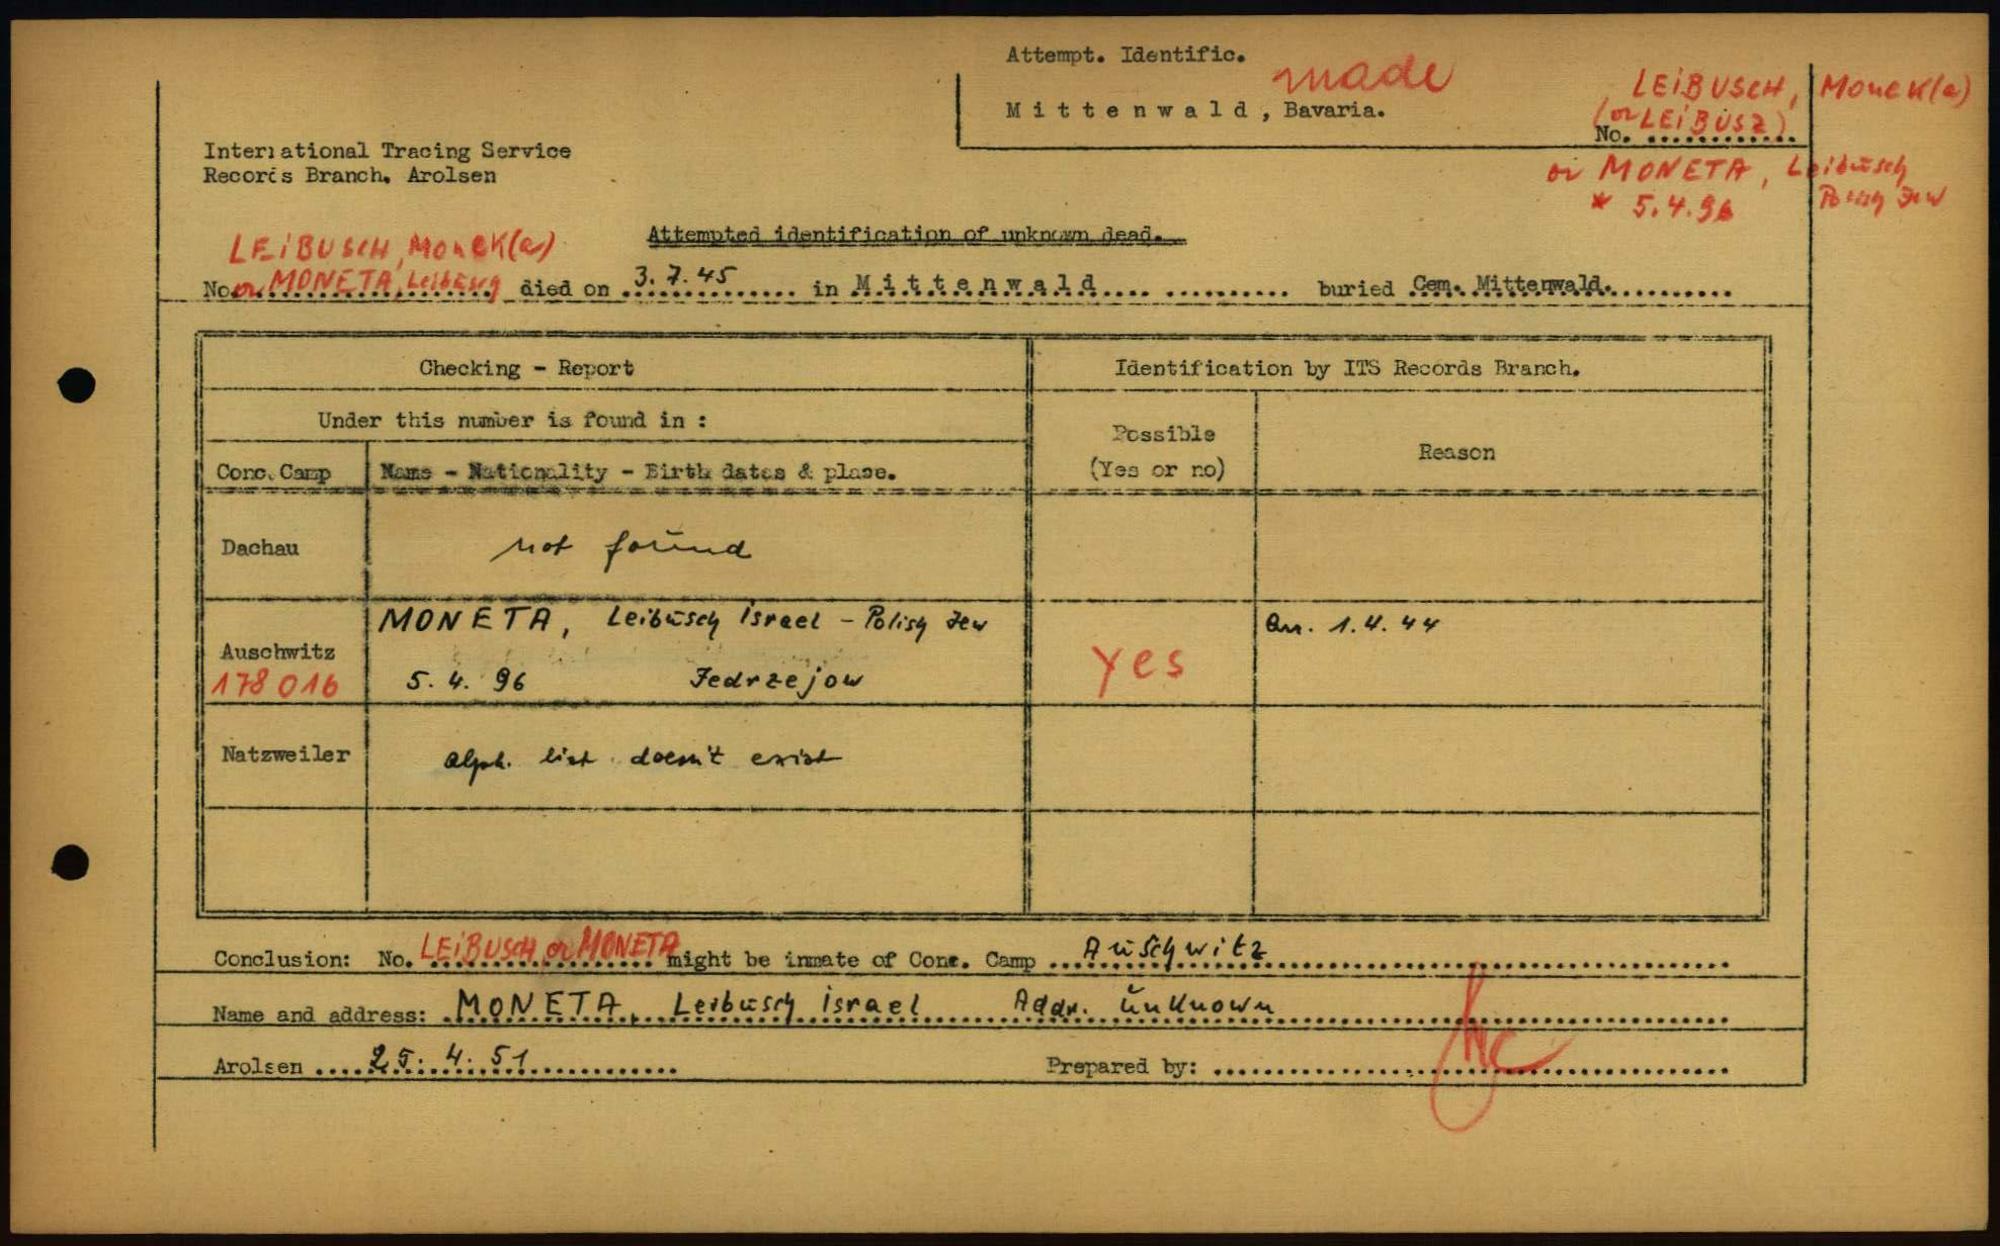 Attempt. Identific.
made
Mittenwald, Bavaria.
LEIBUSCH, Monek(a)
(or LEIBUSZ)
No. ............
or MONETA, Leibusch
* 5.4.96 Polish Jew
International Tracing Service
Records Branch, Arolsen
Attempted identification of unknown dead.
LEIBUSCH, Monek(a)
No. or MONETA, Leibusch died on 3.7.45 in Mittenwald buried Cem. Mittenwald.
Checking - Report
Identification by ITS Records Branch.
Under this number is found in :
Possible
(Yes or no)
Reason
Conc. Camp
Name - Nationality - Birth dates & plase.
Dachau
not found
Auschwitz
178016
MONETA, Leibusch Israel - Polish Jew
5. 4. 96 Jedrzejow
yes
Arr. 1.4.44
Natzweiler
alph. list doesn't exist
Conclusion: No. LEIBUSCH or MONETA might be inmate of Conc. Camp Auschwitz
Name and address: MONETA, Leibusch Israel Addr. unknown
Arolsen 25. 4. 51 Prepared by: